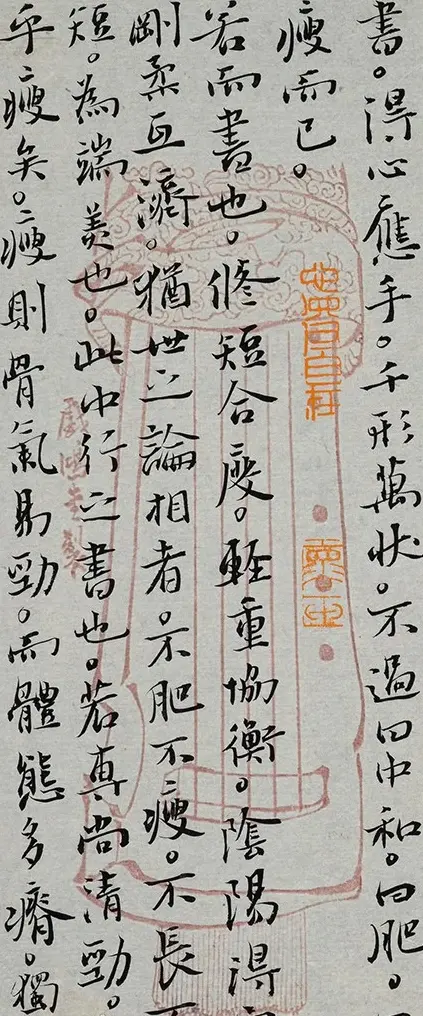 書。得心應手。千形萬狀。不過曰中和。曰肥。
瘦而已。
若而書也。修短合度。輕重協衡。陰陽得
剛柔互濟。猶世之論相者。不肥不瘦。不長不
短。為端美也。此中行之書也。若專尚清勁。
乎瘦矣。瘦則骨氣易勁。而體態多瘠。獨
戲鴻堂製